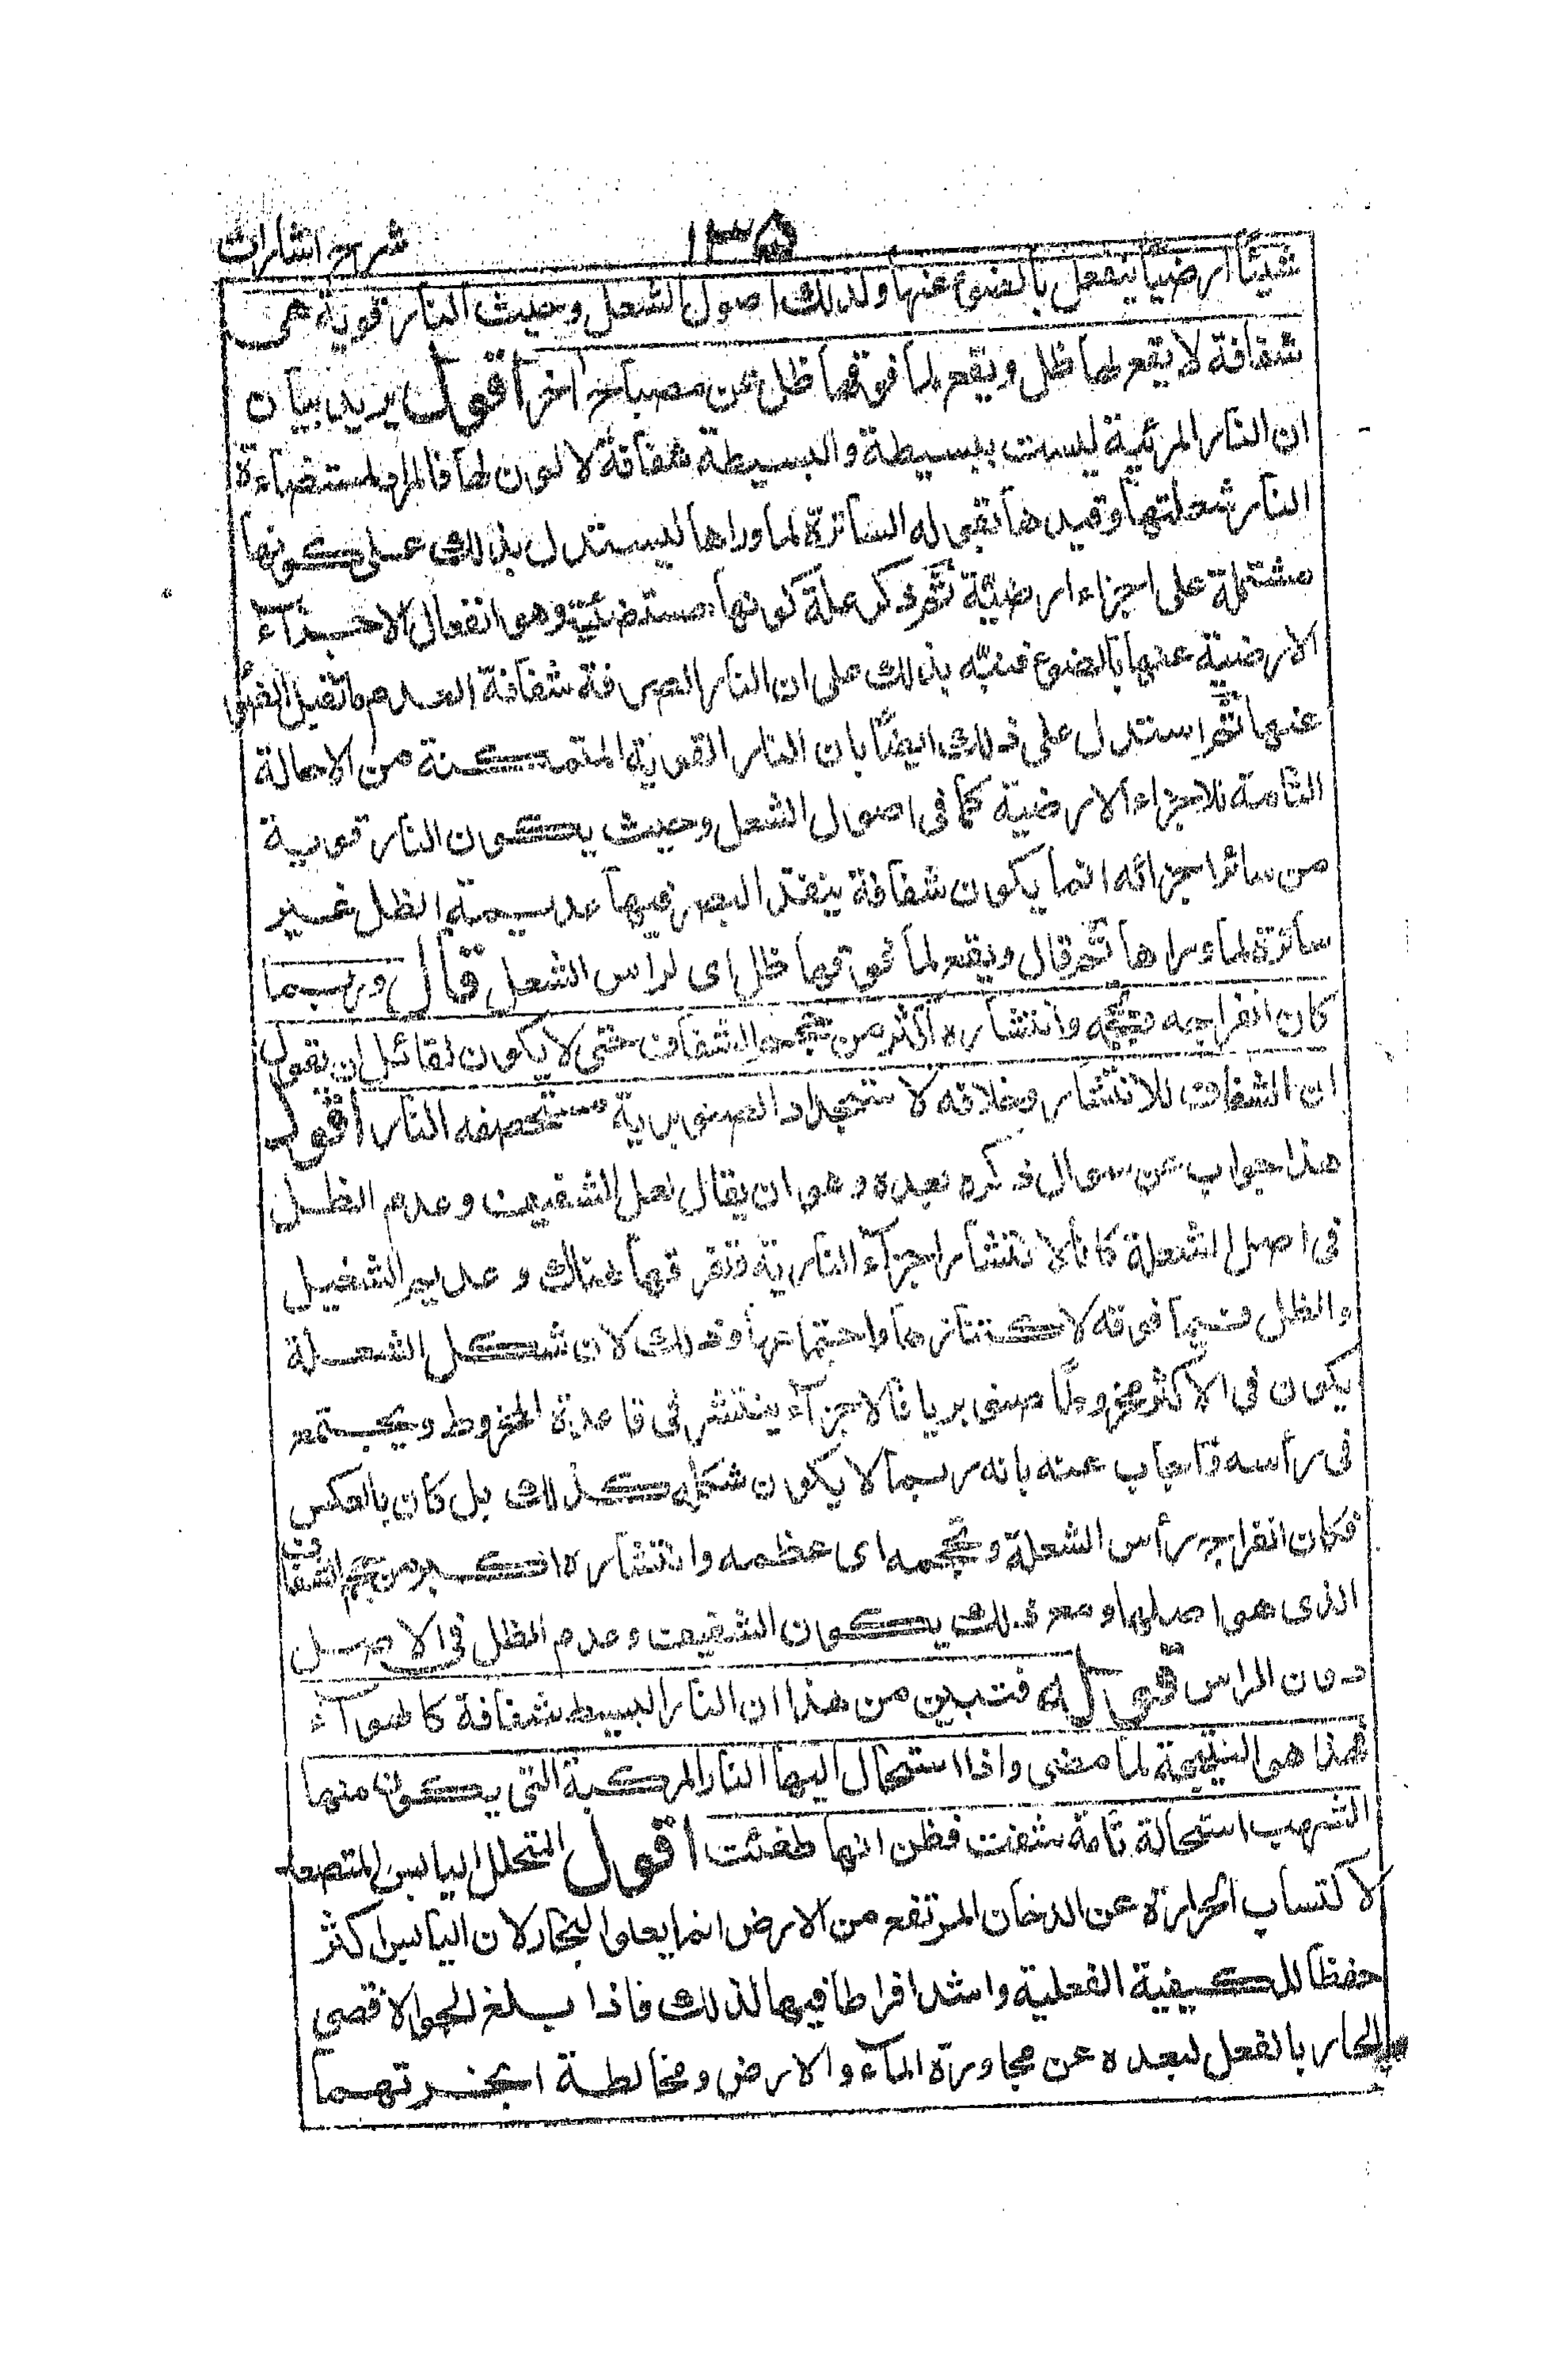 ١٣٥
شرح اشارات
شيئا ارضيا ينفعل بالضوء عنها ولذلك اصول الشعل وحيث النار قوية هى
شفافة لا يقع لها ظل ويقع لما فوقها ظل عن مصباح اخر اقول يريد بيان
ان النار المرئية ليست ببسيطة والبسيطة شفافة لا لون لها فالمراد باستضاءة
النار شعلتها وقيدها بقوله الساترة لما وراها ليستدل بذلك على كونها
مشتملة على اجزاء ارضية ثم ذكر علة كونها مستضيئة وهو انفعال الاجزاء
الارضية عنها بالضوء فنبه بذلك على ان النار الصرفة شفافة لعدم ما تقبل الضوء
عنها ثم استدل على ذلك ايضا بان النار القوية المتمكنة من الاحالة
التامة للاجزاء الارضية كما فى اصول الشعل وحيث يكون النار قوية
من سائر اجزائه انما يكون شفافة ينفذ البصر فيها عديمة الظل غير
ساترة لما وراها ثم قال ويقع لما فوقها ظل اى لراس الشعل قال وربما
كان انفراجه وتحجمه وانتشاره اكثر من تحجم الشفاف حتى لا يكون لقائل ان يقول
ان الشفاف للانتشار وخلافه لاستحداد الصنوبرية مستحصفه النار اقول
هذا جواب عن سوال ذكره بعده وهو ان يقال لعل الشفيف وعدم الظل
فى اصل الشعلة كانا لانتشار اجزاء النارية وتفرقها هناك وعديم الشفيل
والظل فيما فوقه لاكتنازها واجتماعها وذلك لان شكل الشعلة
يكون فى الاكثر مخروطا صنوبريا فالاجزاء ينتشر فى قاعدة المخروط ويجتمع
فى رأسه فاجاب عنه بانه ربما لا يكون شكله كذلك بل كان بالعكس
فكان انفراج رأس الشعلة وتحجمه اى عظمه وانتشاره اكبر من تحجم الشفاف
الذى هو اصلها ومع ذلك يكون الشفيف وعدم الظل فى الاصل
دون الراس قوله فتبين من هذا ان النار البسيط شفافة كالهواء
هذا هو النتيجة لما مضى واذا استحال اليها النار المركبة التى يكون منها
الشهب استحالة تامة شفت فظن انها طفئت اقول المتحلل اليابس المتصعد
لاكتساب الحرارة عن الدخان المرتفع من الارض انما يعلو البخار لان اليابس اكثر
حفظا للكيفية الفعلية واشد افراطا فيها لذلك فاذا بلغ الجو الاقصى
الحار بالفعل لبعده عن مجاورة الماء والارض ومخالطة ابخرتهما